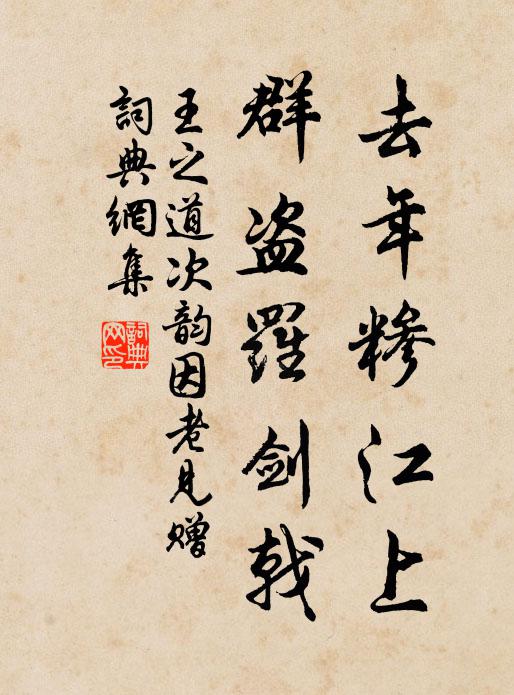 去年糝江上
群盗羅劍戟
王之道次韵因老見贈
詞典網集
詞典網印